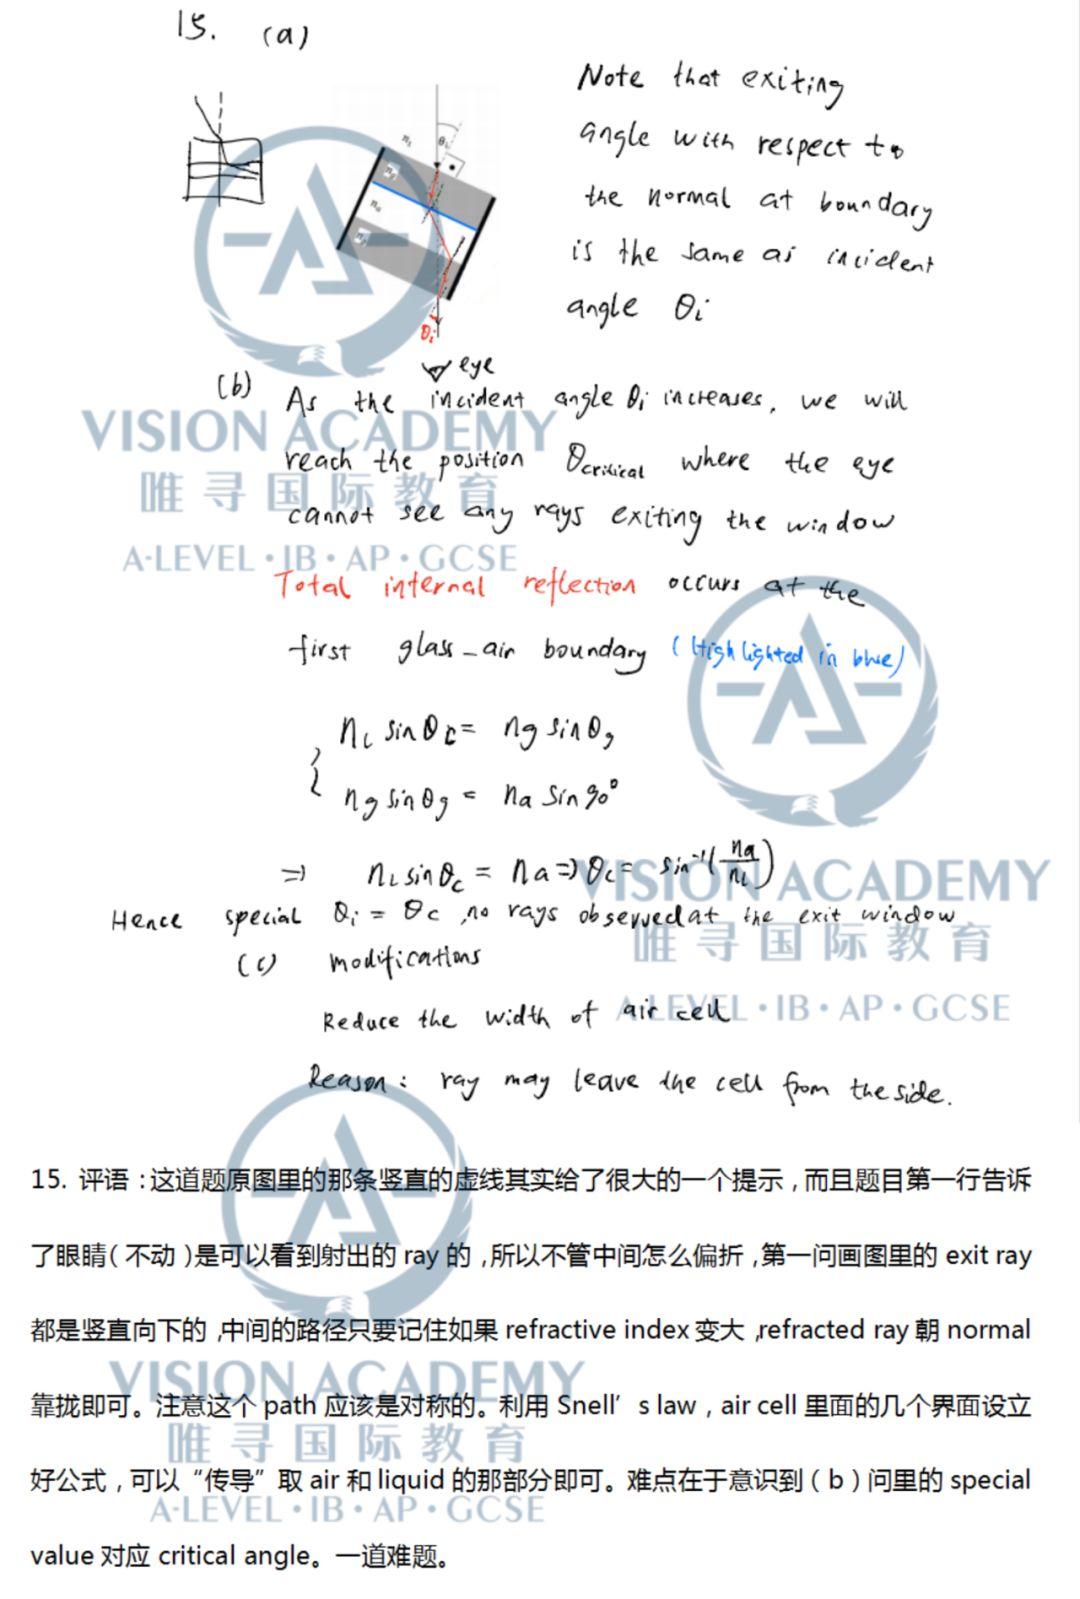 15. (a)
Note that exiting
angle with respect to
the normal at boundary
is the same as incident
angle θi
eye
(b) As the incident angle θi increases, we will
VISION ACADEMY
reach the position θcritical where the eye
唯寻国际教育
cannot see any rays exiting the window
A-LEVEL·IB·AP·GCSE
Total internal reflection occurs at the
first glass-air boundary (Highlighted in blue)
nL sinθc = ng sinθg
ng sinθg = na sin90°
⇒ nL sinθc = na ⇒ θc = sin⁻¹(na/nL)
VISION ACADEMY
Hence special θi = θc, no rays observed at the exit window
唯寻国际教育
(c) modifications
Reduce the width of air cell
A-LEVEL·IB·AP·GCSE
Reason: ray may leave the cell from the side.
15. 评语：这道题原图里的那条竖直的虚线其实给了很大的一个提示，而且题目第一行告诉
了眼睛（不动）是可以看到射出的 ray 的，所以不管中间怎么偏折，第一问画图里的 exit ray
都是竖直向下的，中间的路径只要记住如果 refractive index 变大，refracted ray 朝 normal
VISION ACADEMY
靠拢即可。注意这个 path 应该是对称的。利用 Snell's law，air cell 里面的几个界面设立
唯寻国际教育
好公式，可以“传导”取 air 和 liquid 的那部分即可。难点在于意识到（b）问里的 special
A-LEVEL·IB·AP·GCSE
value 对应 critical angle。一道难题。